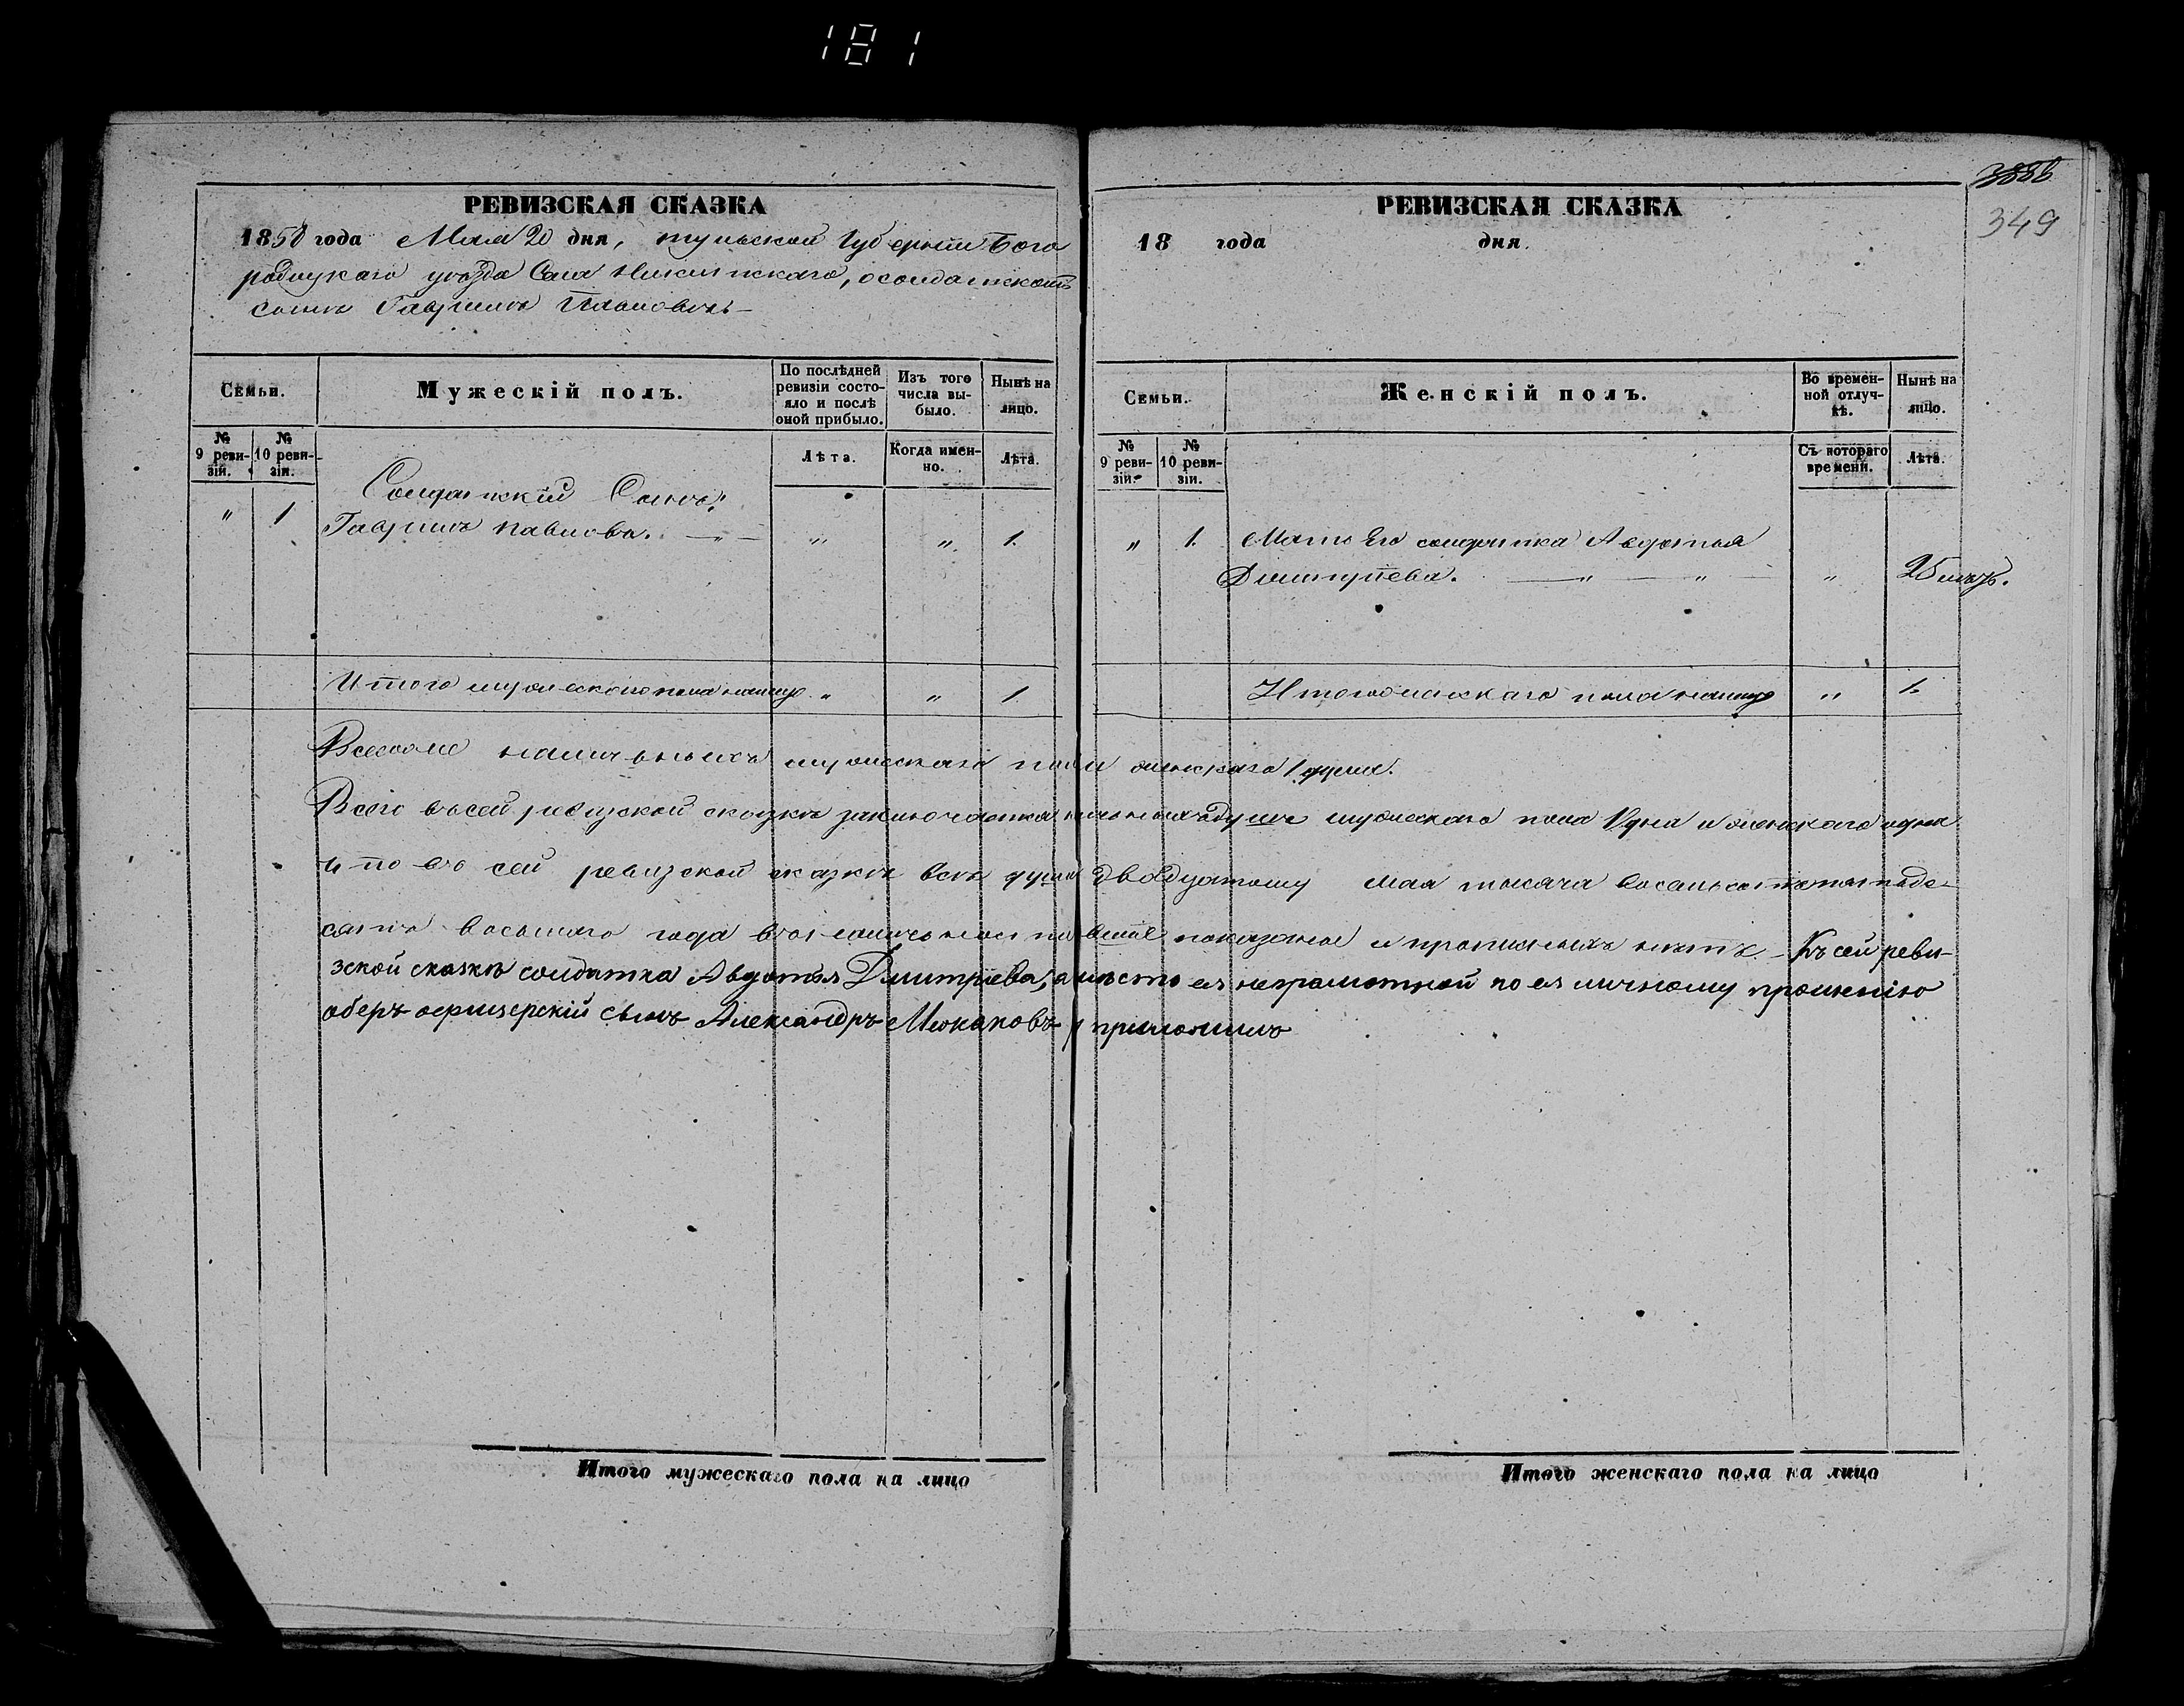 181
РЕВИЗСКАЯ СКАЗКА
1858 года Мая 20 дня, тульской Губерніи Бого
родицкаго уѣзда Села Никитскаго, о солдатскомъ
сынѣ Гаврилѣ Павловѣ
Семьи.
Мужескій полъ.
По послѣдней ревизіи состояло и послѣ оной прибыло.
Изъ того числа выбыло.
Нынѣ на лицо.
№ 9 ревизіи.
№ 10 ревизіи.
Лѣта.
Когда именно.
Лѣта.
Солдатскій Сынъ:
" 1 Гаврилъ павловъ. — " — " " 1.
Итого мужескаго пола налицо " " 1.
РЕВИЗСКАЯ СКАЗКА
18 года дня.
3886
349
Семьи.
Женскій полъ.
Во временной отлучкѣ.
Нынѣ на лицо.
№ 9 ревизіи.
№ 10 ревизіи.
Съ котораго времени.
Лѣта.
" 1. Мать Его солдатка Авдотья
Дмитріева. — " — " — " 25 лѣтъ.
Итого женскаго пола налицо " 1.
наличныхъ мужескаго пола женскаго 1 душа.
Всего въ сей ревизской сказкѣ заключается наличныхъ душъ мужескаго пола 1 дна и женскаго одна
что въ сей ревизской сказкѣ всѣ души двадцатому мая тысяча восемьсотъ пятьде-
сятъ восьмаго года показаные и прописныхъ нѣтъ. Къ сей реви-
зской сказкѣ солдатка Авдотья Дмитріева, а вмѣсто ея неграмотной по ея личному прошенію
оберъ офицерскій сынъ Александръ приложилъ
Итого мужескаго пола на лицо
Итого женскаго пола на лицо